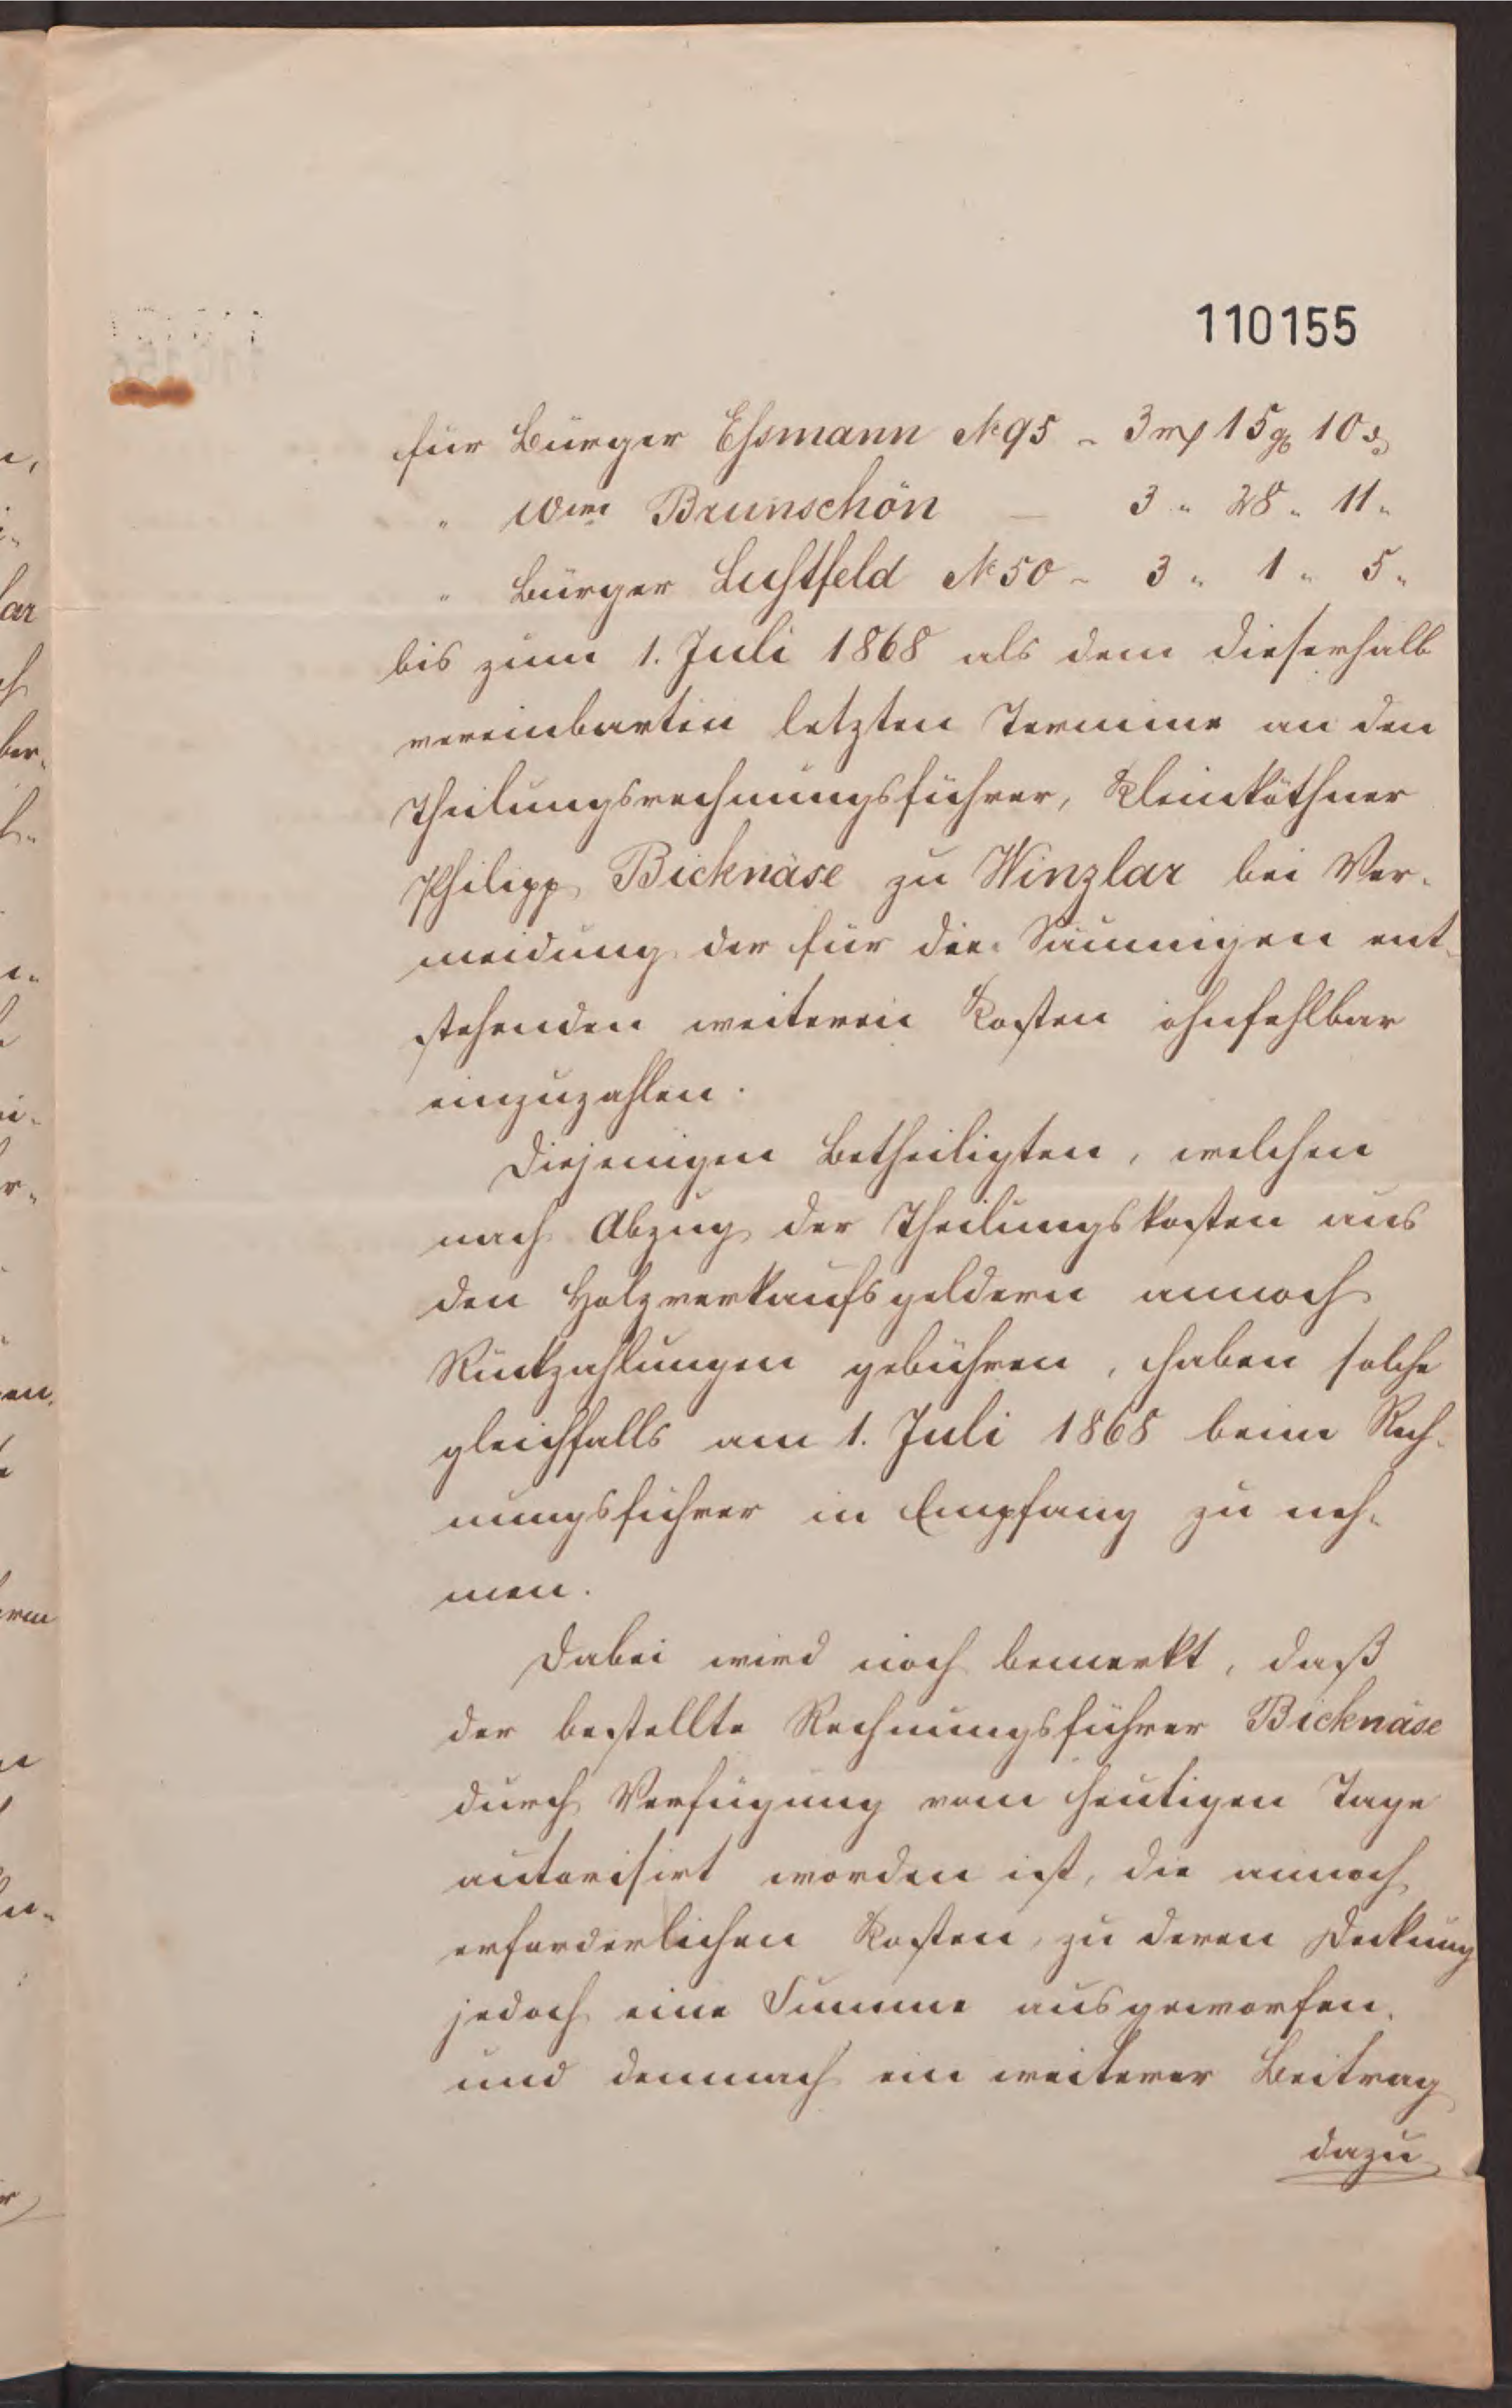 110155
für Bürger Eßmann № 95 - 3 rp 15 gs 10 d
" Wwe Brunschön — 3 " 28 " 11 "
" Bürger Lustfeld № 50 - 3 " 1 " 5 "
bis zum 1. Juli 1868 als dem dieserhalb
vereinbarten letzten Termine an den
Theilungsrechnungsführer, Kleinköthner
Philipp Bicknäse zu Winzlar bei Ver-
meidung der für die Säumigen ent-
stehenden weiteren Kosten ohnfehlbar
einzuzahlen.
Diejenigen Betheiligten, welchen
nach Abzug der Theilungskosten aus
den Holzverkaufsgeldern annoch
Rückzahlungen gebühren, haben solche
gleichfalls am 1. Juli 1868 beim Rech-
nungsführer in Empfang zu neh-
men.
Dabei wird noch bemerkt, daß
der bestellte Rechnungsführer Bicknäse
durch Verfügung vom heutigen Tage
autorisirt worden ist, die annoch
erforderlichen Kosten, zu deren Deckung
jedoch eine Summe ausgeworfen,
und demnach ein weiterer Beitrag
dazu